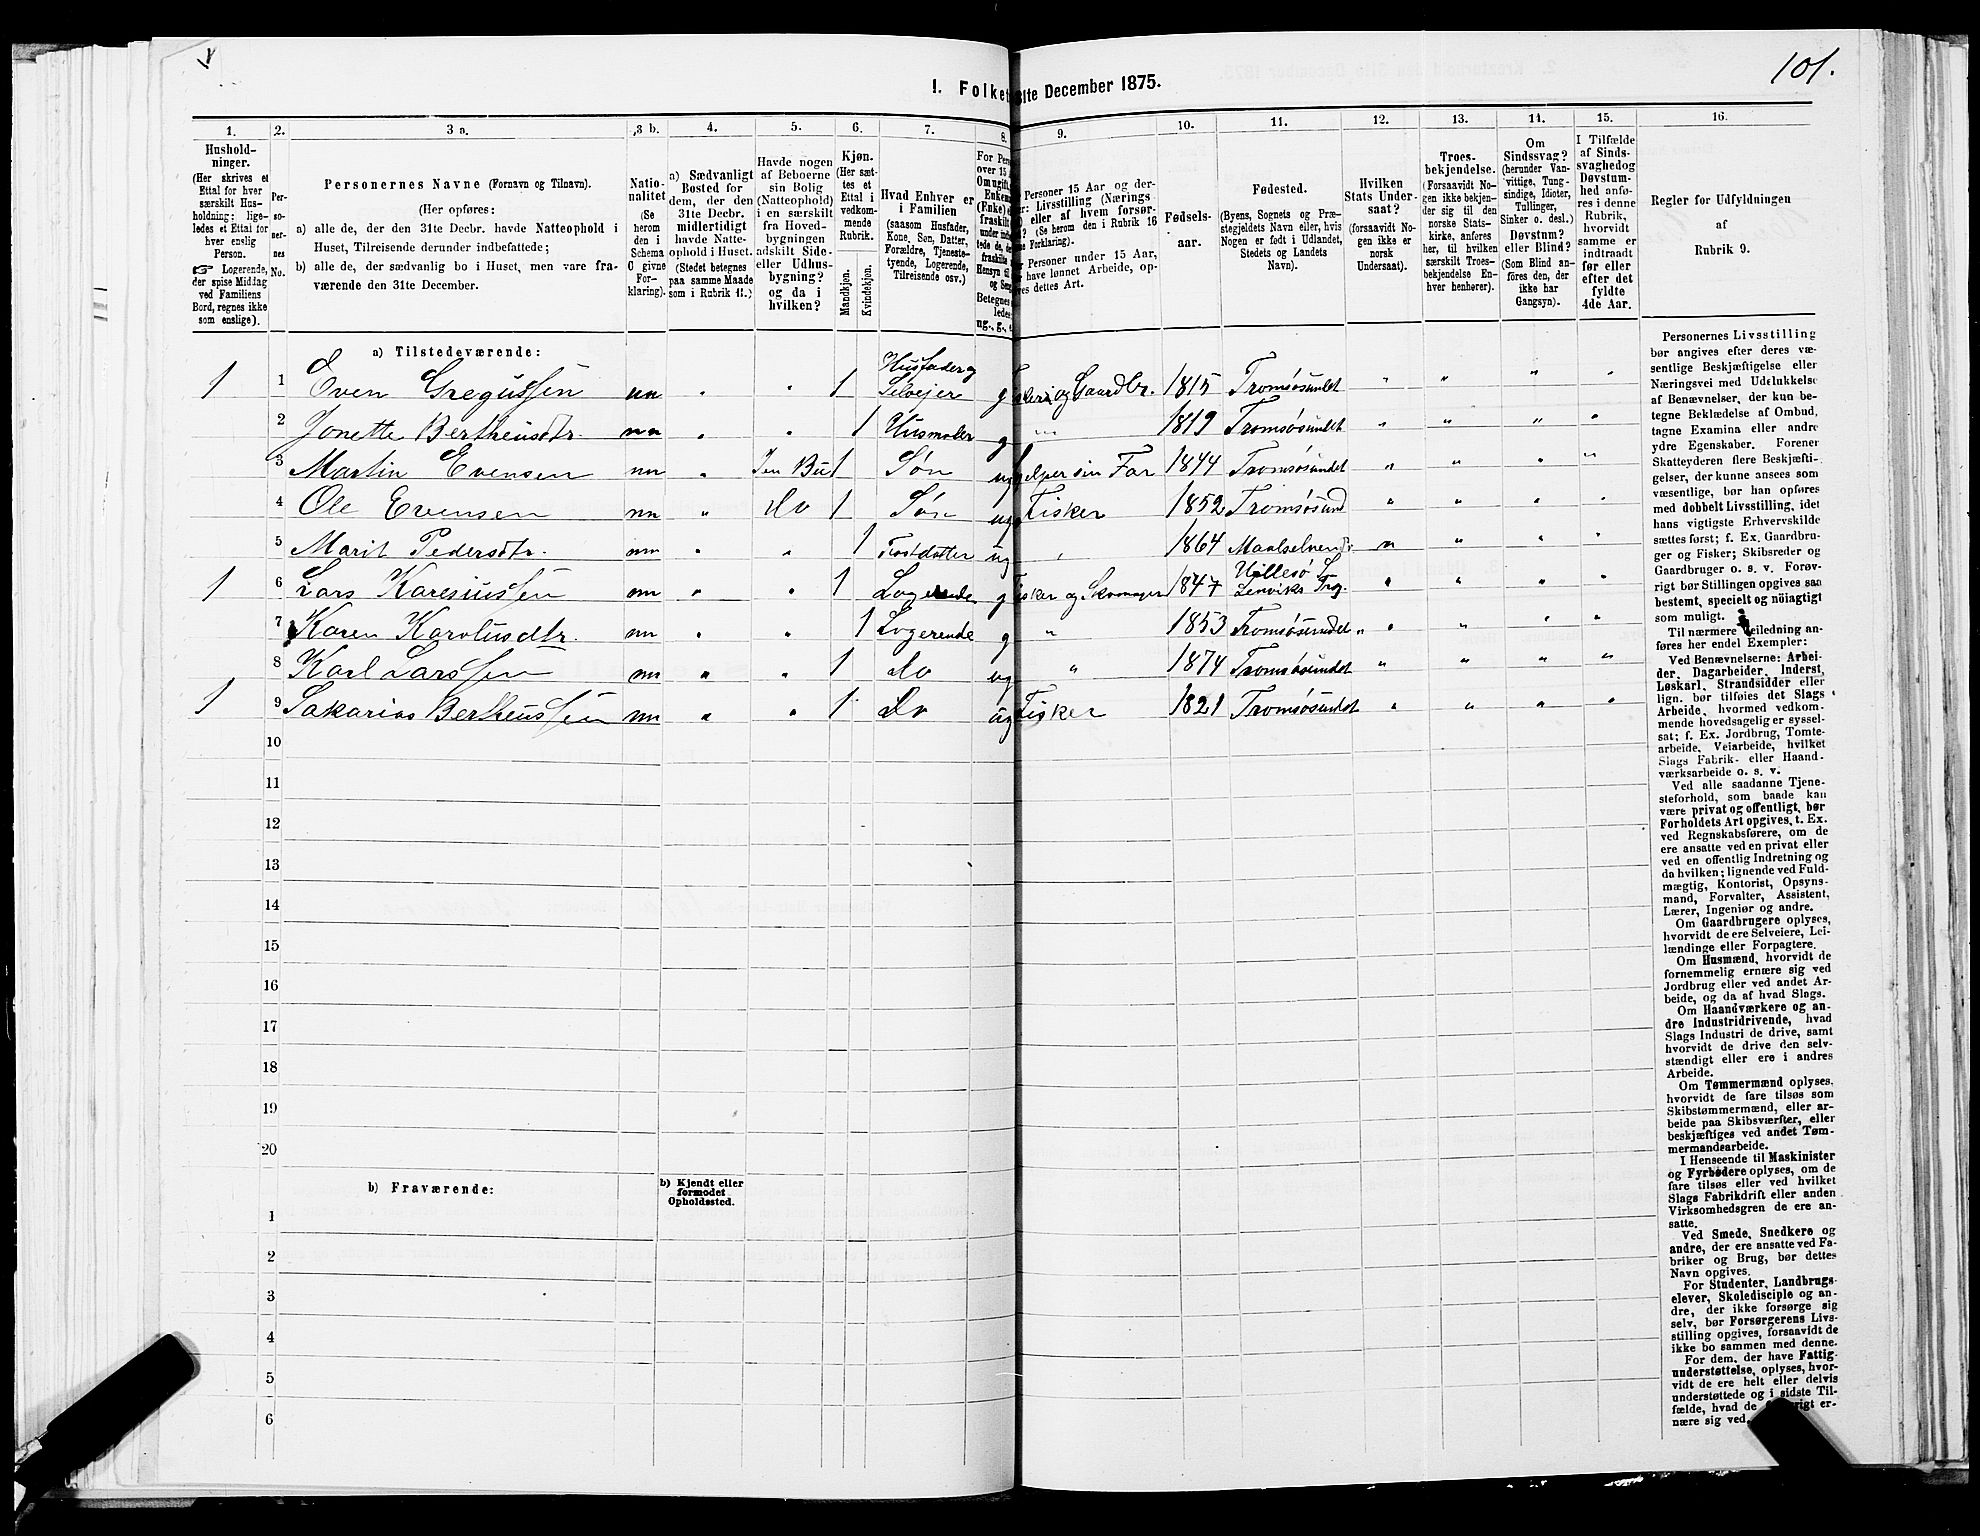 101.
I. Folket 31te December 1875.
1. 2. 3 a. 3 b. 4. 5. 6. 7. 8. 9. 10. 11. 12. 13. 14. 15. 16.
Hushold-
ninger.
(Her skrives et
Ettal for hver
særskilt Hus-
holdning: lige-
ledes et Ettal for
hver enslig
Person.
☞ Logerende,
der spise Middag
ved Familiens
Bord, regnes ikke
som enslige).
Per-
so-
ner-
nes
No.
Personernes Navne (Fornavn og Tilnavn).
(Her opføres:
a) alle de, der den 31te Decbr. havde Natteophold i
Huset, Tilreisende derunder indbefattede;
b) alle de, der sædvanlig bo i Huset, men vare fra-
værende den 31te December.
Natio-
nalitet
(Se
herom
den i
Schema
C givne
For-
klaring).
a) Sædvanligt
Bosted for
dem, der den
31te Decbr.
midlertidigt
havde Natte-
ophold i Huset.
(Stedet betegnes
paa samme Maade
som i Rubrik 11.)
Havde nogen
af Beboerne
sin Bolig
(Natteophold)
i en særskilt
fra Hoved-
bygningen
adskilt Side-
eller Udhus-
bygning?
og da i
hvilken?
Kjøn.
(Her sæt-
tes et
Ettal i
vedkom-
mende
Rubrik.
Mandkjøn.
Kvindekjøn.
Hvad Enhver er
i Familien
(saasom Husfader,
Kone, Søn, Datter,
Forældre, Tjeneste-
tyende, Logerende,
Tilreisende osv.)
For Pers
over 15 A
Om ugift,
Enkem
(Enke) e
fraskilt
Hensyn til
og Sæn
Betegnes
ledes
ug., g., e
Personer 15 Aar og der-
er: Livsstilling (Nærings
) eller af hvem forsør-
? (Se herom den i Rubrik 16
e Forklaring).
Personer under 15 Aar,
have lønnet Arbeide, op-
res dettes Art.
Fødsels-
aar.
Fødested.
(Byens, Sognets og Præ-
stegjeldets Navn eller, hvis
Nogen er født i Udlandet,
Stedets og Landets
Navn).
Hvilken
Stats Under-
saat?
(forsaavidt No-
gen ikke er
norsk
Undersaat).
Troes-
bekjendelse.
(Forsaavidt No-
gen ikke bekjen-
der sig til den
norske Stats-
kirke, anføres
her, til hvilken
særskilt Troes-
bekjendelse En-
hver henhører).
Om
Sindssvag?
(herunder Van-
vittige, Tung-
sindige, Idioter,
Tullinger,
Sinker o. desl.)
Døvstum?
eller Blind?
(Som Blind an-
føres den, der
ikke har
Gangsyn).
I Tilfælde
af Sinds-
svaghed og
Døvstum-
hed anfø-
res i denne
Rubrik,
hvorvidt
samme er
indtraadt
før eller
efter det
fyldte
4de Aar.
Regler for Udfyldningen
af
Rubrik 9.
a) Tilstedeværende:
1 1 Even Gregussen nn " " 1 Husfader og Selveier g Fisker og Gaardbr. 1815 Tromsøsundet " " " "
2 Jonette Bertheusdtr. nn " " 1 Husmoder g " 1819 Tromsøsundet " " " "
3 Martin Evensen nn " I en Bu 1 Søn ug hjelper sin Far 1844 Tromsøsundet " " " "
4 Ole Evensen nn " do 1 Søn ug Fisker 1852 Tromsøsund " " " "
5 Marit Pedersdtr. nn " " 1 Fostdatter ug " 1864 Maalselven " " " "
1 6 Lars Karesiussen nn " " 1 Logerende g Fisker og Skomager 1847 Hillesø S. Lenviks Prg. " " " "
7 Karen Karolusdtr. nn " " 1 Logerende g " 1853 Tromsøsundet " " " "
8 Karl Larssen nn " " 1 do ug " 1874 Tromsøsundet " " " "
1 9 Sakarias Bertheussen nn " " 1 do ug Fisker 1821 Tromsøsundet " " " "
10
11
12
13
14
15
16
17
18
19
20
b) Fraværende:
b) Kjendt eller
formodet
Opholdssted.
1
2
3
4
5
6
Personernes Livsstilling
bør angives efter deres væ-
sentlige Beskjæftigelse eller
Næringsvei med Udelukkelse
af Benævnelser, der kun be-
tegne Beklædelse af Ombud,
tagne Examina eller andre
ydre Egenskaber. Forener
Skatteyderen flere Beskjæfti-
gelser, der kunne ansees som
væsentlige, bør han opføres
med dobbelt Livsstilling, idet
hans vigtigste Erhvervskilde
sættes først; f. Ex. Gaardbru-
ger og Fisker; Skibsreder og
Gaardbruger o. s. v. Forøv-
rigt bør Stillingen opgives saa
bestemt, specielt og nöiagtigt
som muligt.
Til nærmere Veiledning an-
føres her endel Exempler:
Ved Benævnelserne: Arbei-
der, Dagarbeider, Inderst,
Løskarl, Strandsidder eller
lign. bør tilføies det Slags
Arbeide, hvormed vedkom-
mende hovedsagelig er syssel-
sat; f. Ex. Jordbrug, Tomte-
arbeide, Veiarbeide, hvilket
Slags Fabrik- eller Haand-
værksarbeide o. s. v.
Ved alle saadanne Tjene-
steforhold, som baade kan
være privat og offentligt, bør
Forholdets Art opgives, t. Ex.
ved Regnskabsførere, om de
ere ansatte ved en privat eller
ved en offentlig Indretning og
da hvilken; lignende ved Fuld-
mægtig, Kontorist, Opsyns-
mand, Forvalter, Assistent,
Lærer, Ingeniør og andre.
Om Gaardbrugere oplyses,
hvorvidt de ere Selveiere, Lei-
lændinge eller Forpagtere.
Om Husmænd, hvorvidt de
fornemmelig ernære sig ved
Jordbrug eller ved andet Ar-
beide, og da af hvad Slags.
Om Haandværkere og an-
dre Industridrivende, hvad
Slags Industri de drive, samt
hvorvidt de drive den selv-
stændigt eller ere i andres
Arbeide.
Om Tømmermænd oplyses,
hvorvidt de fare tilsøs som
Skibstømmermænd, eller ar-
beide paa Skibsværfter, eller
beskjæftiges ved andet Tøm-
mermandsarbeide.
I Henseende til Maskinister
og Fyrbødere oplyses, om de
fare tilsøs eller ved hvilket
Slags Fabrikdrift eller anden
Virksomhedsgren de ere an-
satte.
Ved Smede, Snedkere og
andre, der ere ansatte ved Fa-
briker og Brug, bør dettes
Navn opgives.
For Studenter, Landbrugs-
elever, Skoledisciple og an-
dre, der ikke forsørge sig
selv, bør Forsørgerens Livs-
stilling opgives, forsaavidt de
ikke bo sammen med denne.
For dem, der have Fattig-
understøttelse, oplyses, hvor-
vidt de ere helt eller delvis
understøttede og i sidste Til-
fælde, hvad de er-
nære sig ved.